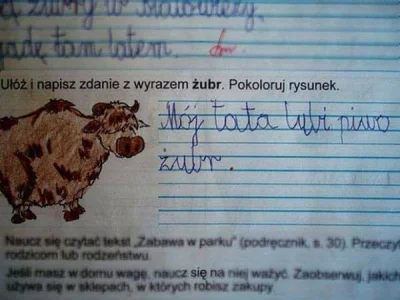 żubry w Białowieży.
jadę tam latem.
Ułóż i napisz zdanie z wyrazem żubr. Pokoloruj rysunek.
Mój tata lubi piwo
żubr.
Naucz się czytać tekst „Zabawa w parku” (podręcznik, s. 30). Przeczytaj
rodzicom lub rodzeństwu.
Jeśli masz w domu wagę, naucz się na niej ważyć. Zaobserwuj, jakich
używa się w sklepach, w których robisz zakupy.